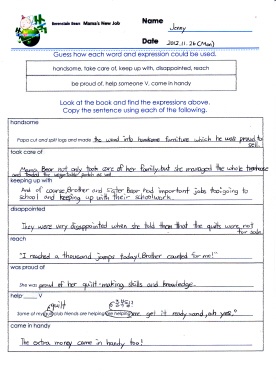 Berenstain Bear Mama's New Job
Name Jenny
Date 2012.11.26(Mon)
Guess how each word and expression could be used.
handsome, take care of, keep up with, disappointed, reach
be proud of, help someone V, come in handy
Look at the book and find the expressions above.
Copy the sentence using each of the following.
handsome
Papa cut and split logs and made the wood into handsome furniture which he was proud to
sell.
took care of
Mama Bear not only took care of her family but she managed the whole treehouse
and tended the vegetable patch as well
keeping up with
And of course, Brother and Sister Bear had important jobs too: going to
school and keeping up with their schoolwork.
disappointed
They were very disappointed when she told them that the quilts were not
for sale.
reach
"I reached a thousand jumps today! Brother counted for me!"
was proud of
She was proud of her quilt-making skills and knowledge.
help ___ V
quilt
Some of my club friends are helping me get it ready and, oh yes,"
came in handy
The extra money came in handy too!